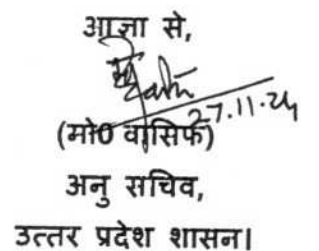 आज्ञा से,
27.11.24
(मो0 वासिफ)
अनु सचिव,
उत्तर प्रदेश शासन।